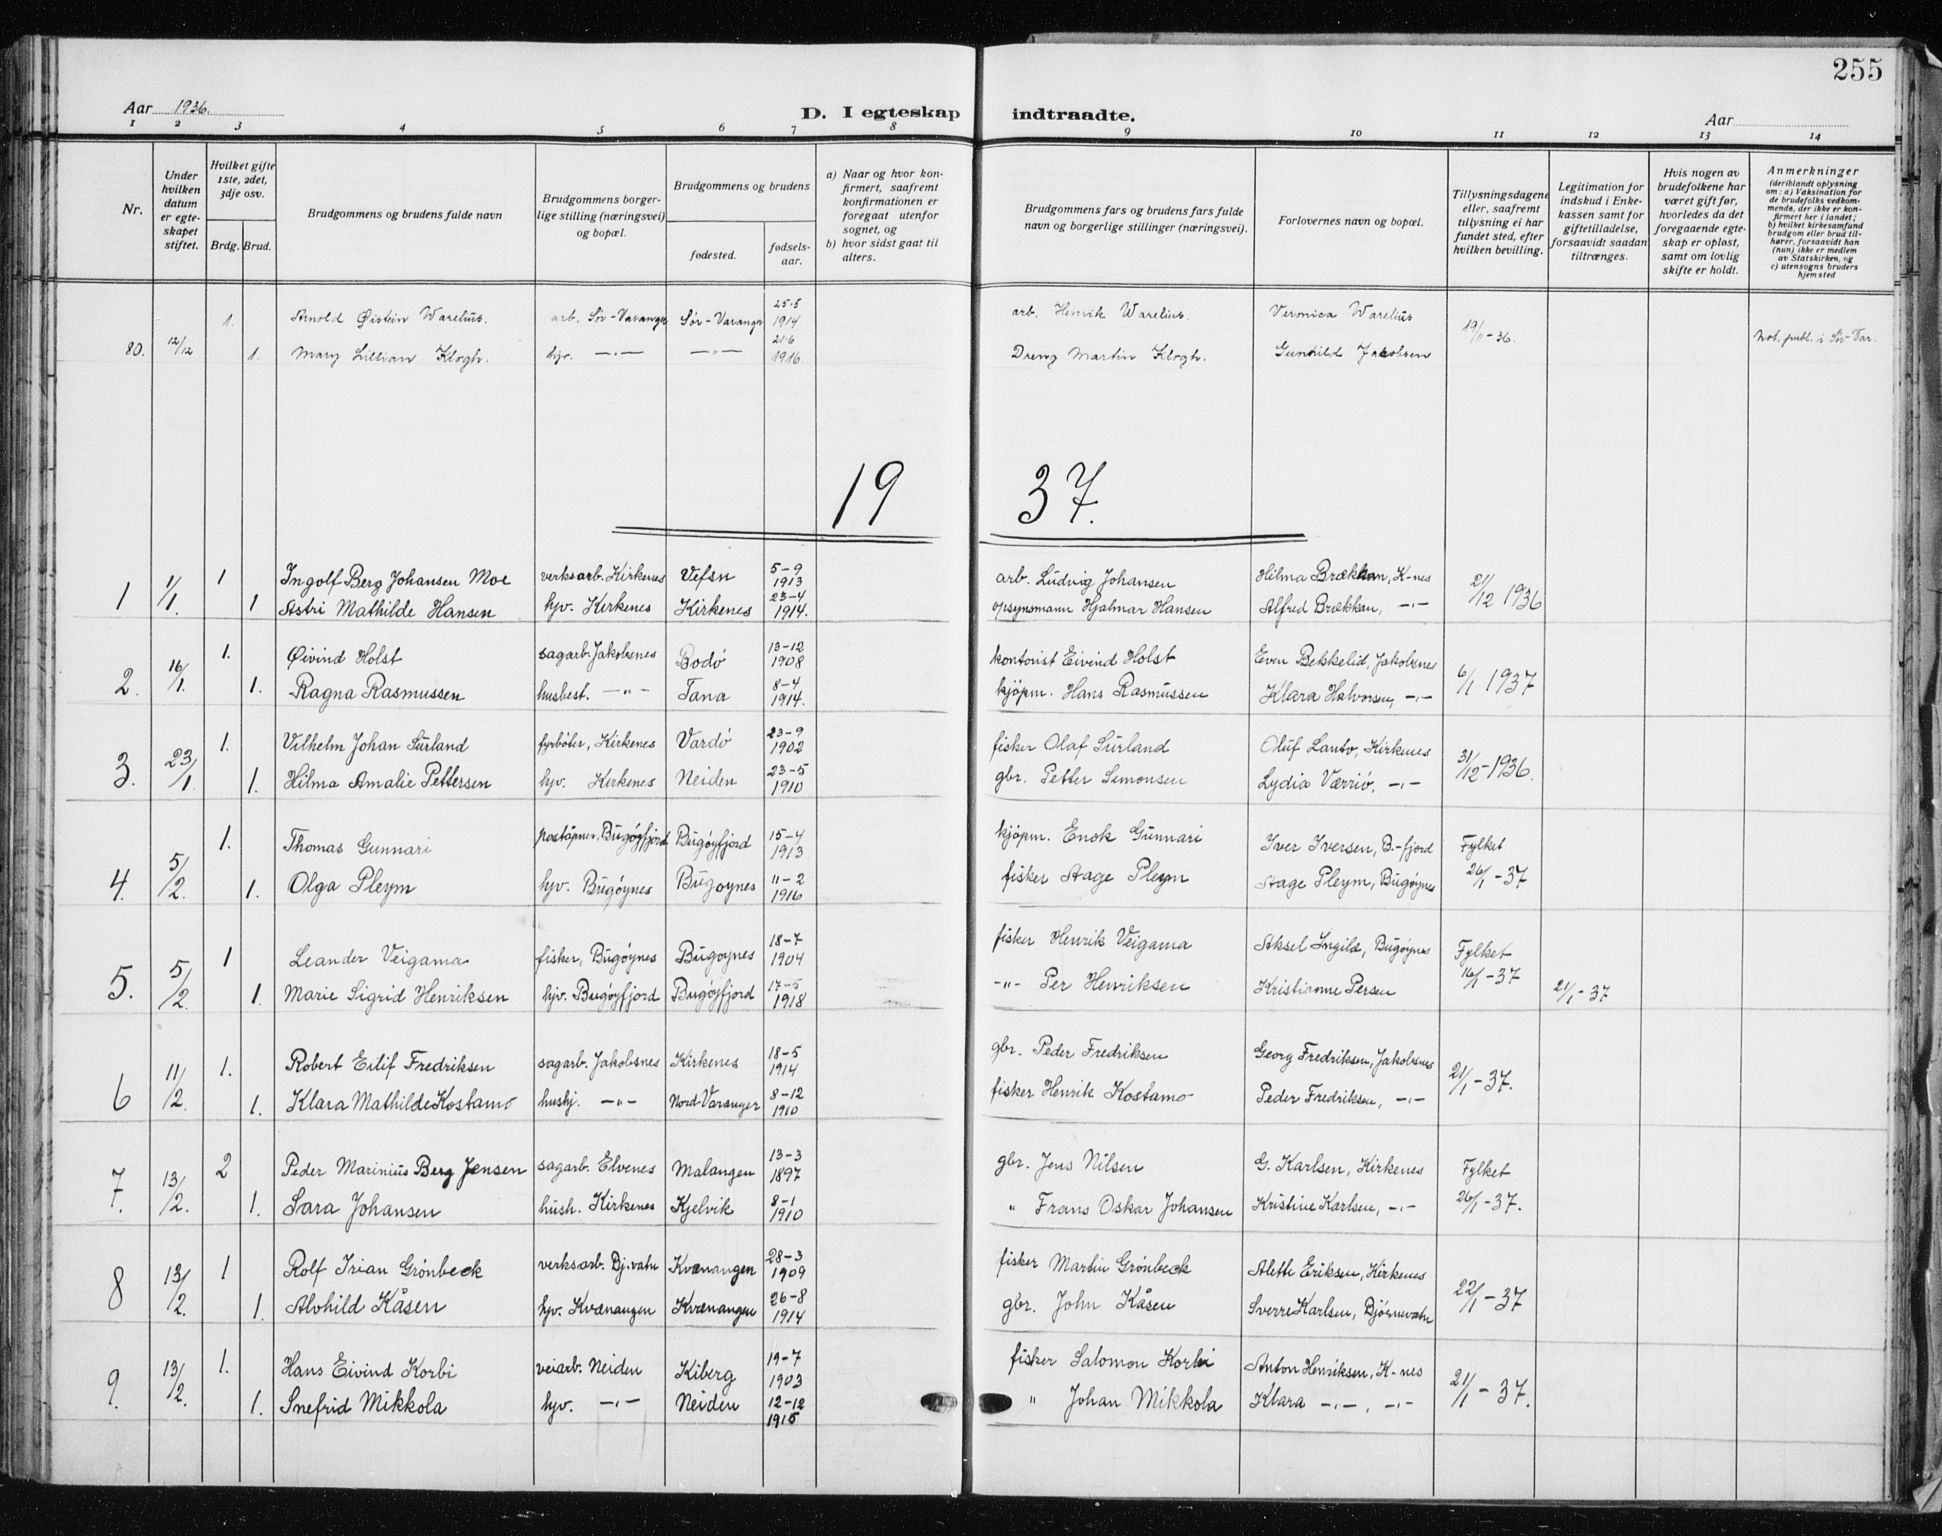 255
Aar 1936. D. I egteskap indtraadte. Aar
1 2 3 4 5 6 7 8 9 10 11 12 13 14
Nr.
Under hvilken datum er egteskapet stiftet.
Hvilket gifte 1ste, 2det, 3dje osv.
Brdg. Brud.
Brudgommens og brudens fulde navn
Brudgommens borgerlige stilling (næringsvei) og bopæl.
Brudgommens og brudens
fødested.
fødselsaar.
a) Naar og hvor konfirmert, saafremt konfirmationen er foregaat utenfor sognet, og
b) hvor sidst gaat til alters.
Brudgommens fars og brudens fars fulde navn og borgerlige stillinger (næringsvei).
Forlovernes navn og bopæl.
Tillysningsdagene eller, saafremt tillysning ei har fundet sted, efter hvilken bevilling.
Legitimation for indskud i Enkekassen samt for giftetilladelse, forsaavidt saadan tiltrænges.
Hvis nogen av brudefolkene har været gift før, hvorledes da det foregaaende egteskap er opløst, samt om lovlig skifte er holdt.
Anmerkninger (deriblandt oplysning om: a) Vaksination for de brudefolks vedkommende, der ikke er konfirmert her i landet; b) hvilket kirkesamfund brudgom eller brud tilhører, forsaavidt han (hun) ikke er medlem av Statskirken, og c) utensogns bruders hjemsted
1. Arnold Øistein Warelius. arb. Sør-Varanger Sør-Varanger 25-5 1914 arb. Henrik Warelius. Veronica Warelius 19/11-36.
80. 12/12 1. Mary Lillian Klogh. hjv. -"- -"- 21-6 1916 Dreng Martin Klogh. Gunhild Jakobsen Not. publ. i Sør-Var.
1937.
1 1/1. 1 Ingolf Berg Johansen Moe verksarb. Kirkenes Vefsn 5-9 1913 arb. Ludvig Johansen Hilma Brækkan, K-nes 21/12 1936
1 Astri Mathilde Hansen hjv. Kirkenes Kirkenes 23-4 1914. opsynsmann Hjalmar Hansen Alfred Brækkan, -"-
2. 16/1. 1. Øivind Holst sagarb. Jakobsnes Bodö 13-12 1908 kontorist Eivind Holst Even Bekkelid, Jakobsnes 6/1 1937
1. Ragna Rasmussen husbest. -"- Tana 8-4 1914. kjöpm. Hans Rasmussen Klara Halvorsen, -"-
3. 23/1 1. Vilhelm Johan Surland fyrböter, Kirkenes Vardö 23-9 1902 fisker Olaf Surland Oluf Lanto, Kirkenes 31/12-1936.
1. Hilma Amalie Pettersen hjv. Kirkenes Neiden 23-5 1910 gbr. Petter Simonsen Lydia Værriö. -"-
4. 5/2. 1. Thomas Gunnari postöpner, Bugöyfjord Bugöyfjord 15-4 1913 kjöpm. Enok Gunnari Iver Iversen, B.-fjord Fylket
1. Olga Pleym hjv. Bugöynes Bugoynes 11-2 1916 fisker Aage Pleym Aage Pleym, Bugöynes 26/1-37
5. 5/2 1 Leander Veigama fisker, Bugöynes Bugoynes 18-7 1904 fisker Henrik Veigama Aksel Ingilæ, Bugöynes Fylket
1. Marie Sigrid Henriksen hjv. Bugöyfjord Bugöyfjord 17-5 1918 -"- Per Henriksen Kristianne Persen 16/1-37 21/1-37
6 11/2. 1. Robert Eilif Fredriksen sagarb. Jakobsnes Kirkenes 18-5 1914 gbr. Peder Fredriksen Georg Fredriksen, Jakobsnes 21/1-37.
1. Klara Mathilde Kostamo hushj. -"- Nord-Varanger 8-12 1910 fisker Henrik Kostamo Peder Fredriksen, -"-
7. 13/2. 2 Peder Marinius Berg Jensen sagarb. Elvenes Malangen 13-3 1897 gbr. Jens Nilsen G. Karlsen, Kirkenes Fylket
1. Sara Johansen hush. Kirkenes Kjelvik 8-1 1910 " Frans Oskar Johansen Kristine Karlsen, -"- 26/1-37.
8 13/2. 1 Rolf Irian Grönbeck verksarb. Bj.vatn Kvænangen 28-3 1909 fisker Martin Grönbeck Alette Eriksen, Kirkenes 22/1-37
1. Alvhild Kåsen hjv. Kvænangen Kvænangen 26-8 1914 gbr. John Kåsen Sverre Karlsen, Bjørnevatn
9. 13/2. 1. Hans Eivind Korbi veiarb. Neiden Kiberg 19-7 1903 fisker Salomon Korbi Anton Henriksen, K-nes 21/1-37.
1. Snefrid Mikkola hjv. -"- Neiden 12-12 1915 " Johan Mikkola Klara -"-, -"-